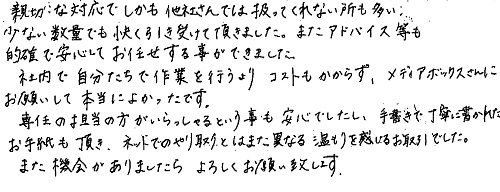 親切な対応でしかも他社さんでは扱ってくれない所も多い、
少ない数量でも快く引き受けて頂きました。またアドバイス等も
的確で安心してお任せする事ができました。
社内で自分たちで作業を行うよりコストもかからず、メディアボックスさんに
お願いして本当によかったです。
専任の担当の方がいらっしゃるという事も安心でしたし、手書きで丁寧に書かれた
お手紙も頂き、ネットでのやり取りとはまた異なる温もりを感じるお取引でした。
また機会がありましたらよろしくお願い致します。